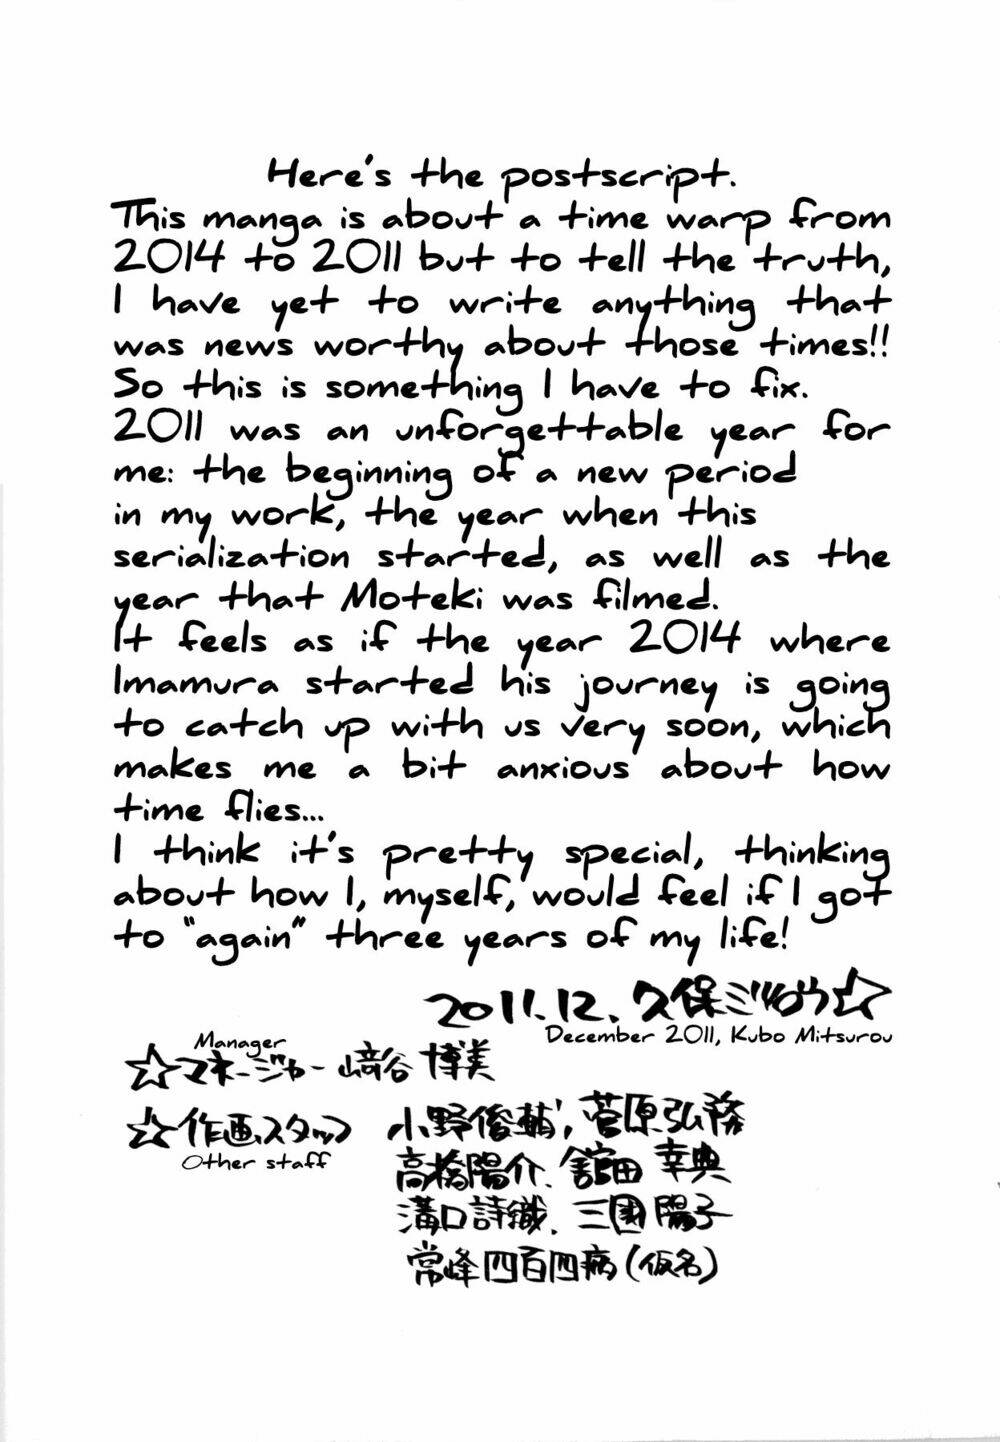 Here's the postscript.
This manga is about a time warp from
2014 to 2011 but to tell the truth,
I have yet to write anything that
was news worthy about those times!!
So this is something I have to fix.
2011 was an unforgettable year for
me: the beginning of a new period
in my work, the year when this
serialization started, as well as the
year that Moteki was filmed.
It feels as if the year 2014 where
Imamura started his journey is going
to catch up with us very soon, which
makes me a bit anxious about how
time flies...
I think it's pretty special, thinking
about how I, myself, would feel if I got
to "again" three years of my life!
2011.12. 久保ミツロウ☆
December 2011, Kubo Mitsurou
Manager
☆マネージャー 﨑谷 博美
☆作画スタッフ 小野俊輔、菅原弘務
Other staff
高橋陽介、舘田 幸典
溝口詩織、三國陽子
常峰四百四病(仮名)